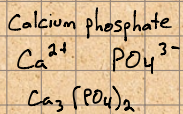 Calcium phosphate
Ca²⁺ PO₄³⁻
Ca₃(PO₄)₂